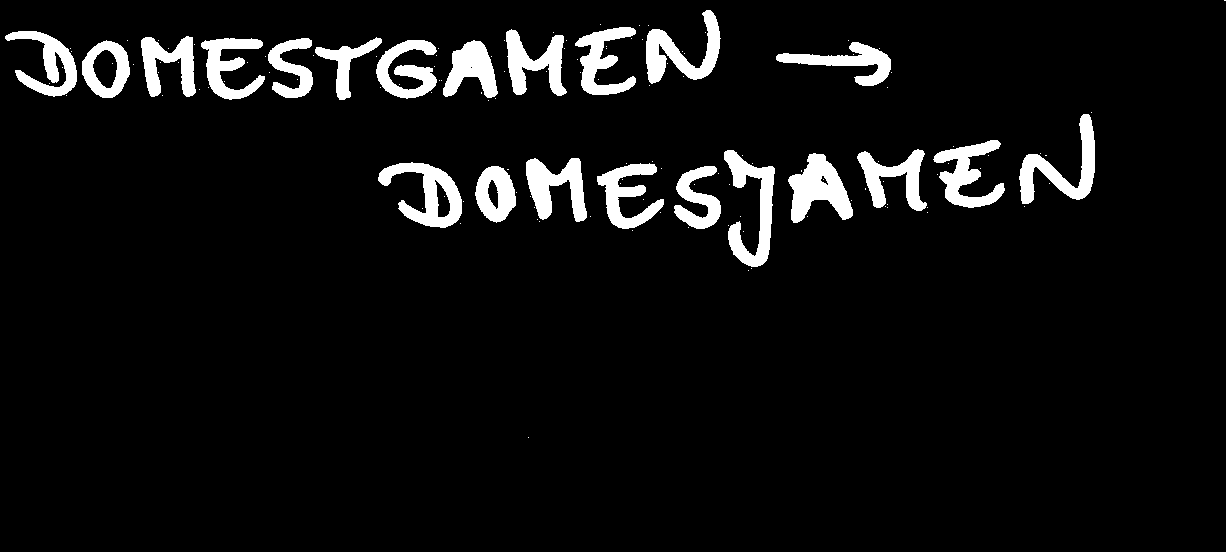 DOMESTGAMEN →
DOMESJAMEN